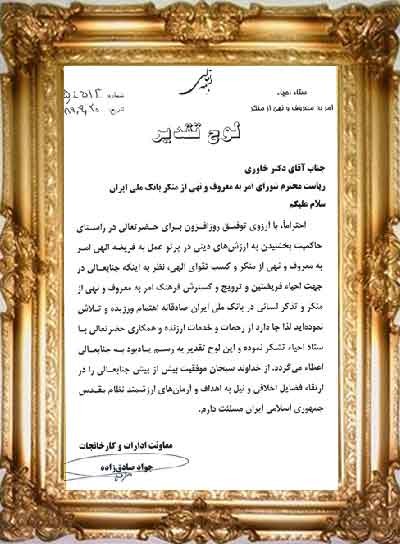 بسمه تعالی
ستاد احیاء
امر به معروف و نهی از منکر
شماره
تاریخ
لوح تقدیر
جناب آقای دکتر خاوری
ریاست محترم شورای امر به معروف و نهی از منکر بانک ملی ایران
سلام علیکم
احتراماً، با آرزوی توفیق روزافزون برای حضرتعالی در راستای
حاکمیت بخشیدن به ارزش‌های دینی در پرتو عمل به فریضه الهی امر
به معروف و نهی از منکر و کسب تقوای الهی، نظر به اینکه جنابعالی در
جهت احیاء فریضتین و ترویج و گسترش فرهنگ امر به معروف و نهی از
منکر و تذکر لسانی در بانک ملی ایران صادقانه اهتمام ورزیده و تلاش
نموده‌اید لذا جا دارد از زحمات و خدمات ارزنده و همکاری حضرتعالی با
ستاد احیاء تشکر نموده و این لوح تقدیر به رسم یادبود به جنابعالی
اعطاء می‌گردد. از خداوند سبحان موفقیت بیش از پیش جنابعالی را در
ارتقاء فضایل اخلاقی و نیل به اهداف و آرمان‌های ارزشمند نظام مقدس
جمهوری اسلامی ایران مسئلت دارم.
معاونت ادارات و کارخانجات
جواد صادق‌زاده